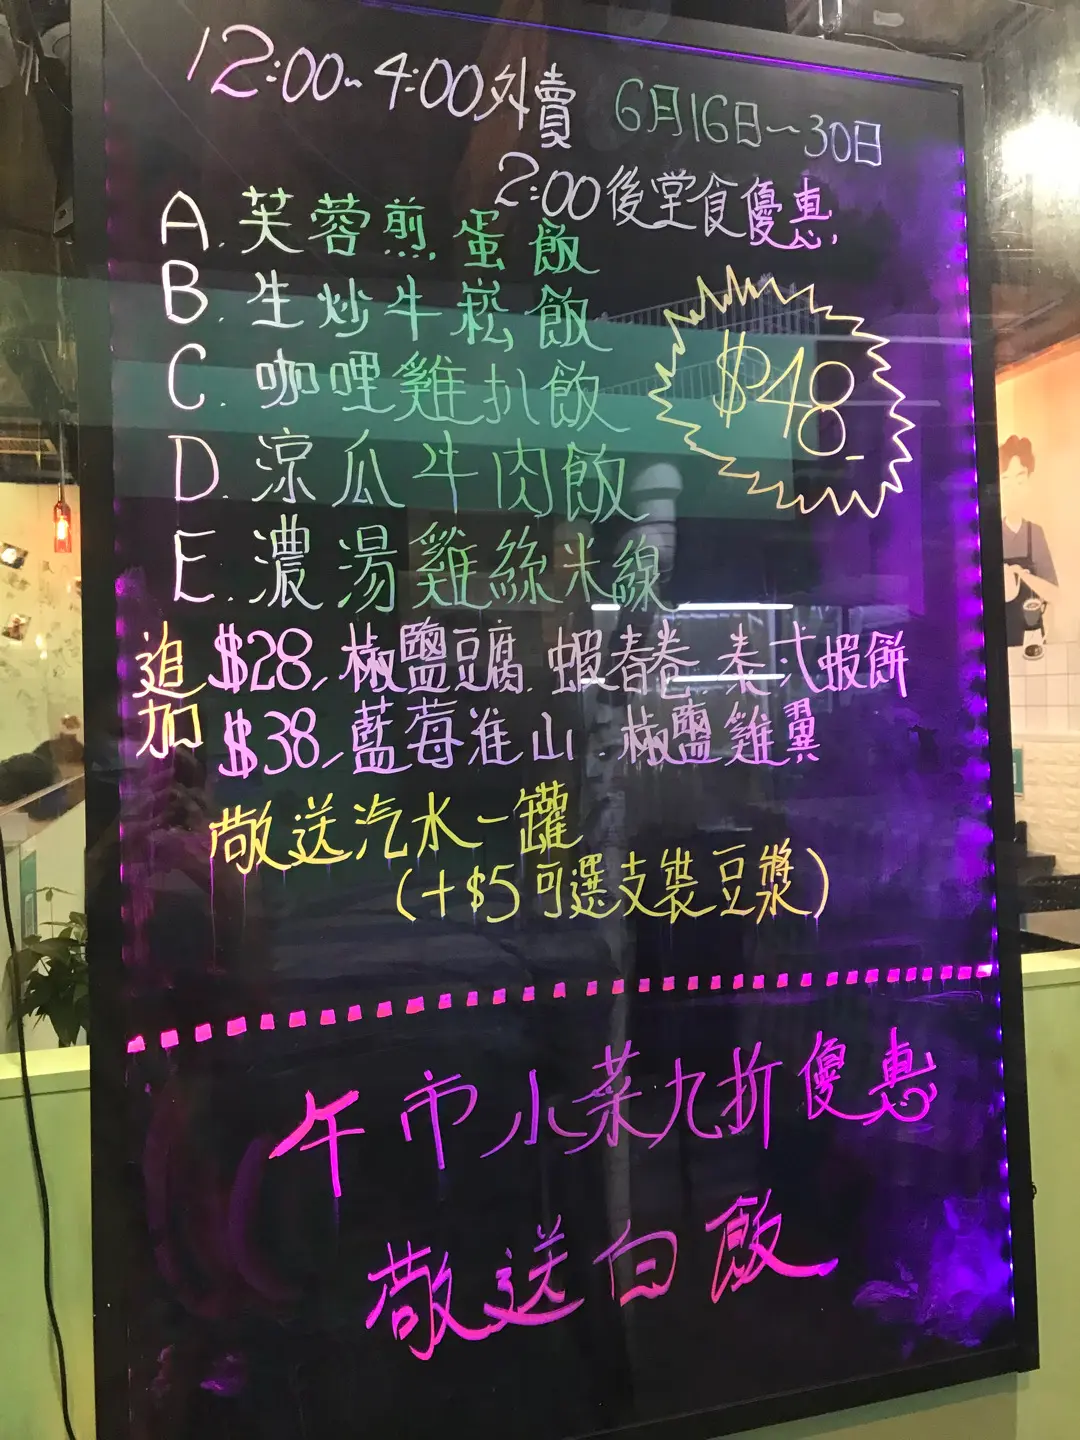 12:00~4:00外賣 6月16日~30日
2:00後堂食優惠
A. 芙蓉煎蛋飯
B. 生炒牛崧飯
C. 咖哩雞扒飯
D. 涼瓜牛肉飯
E. 濃湯雞絲米線
$48
追加
$28, 椒鹽豆腐. 蝦春卷. 泰式蝦餅
$38, 藍莓淮山. 椒鹽雞翼
敬送汽水一罐
(+$5可選支裝豆漿)
午市小菜九折優惠
敬送白飯